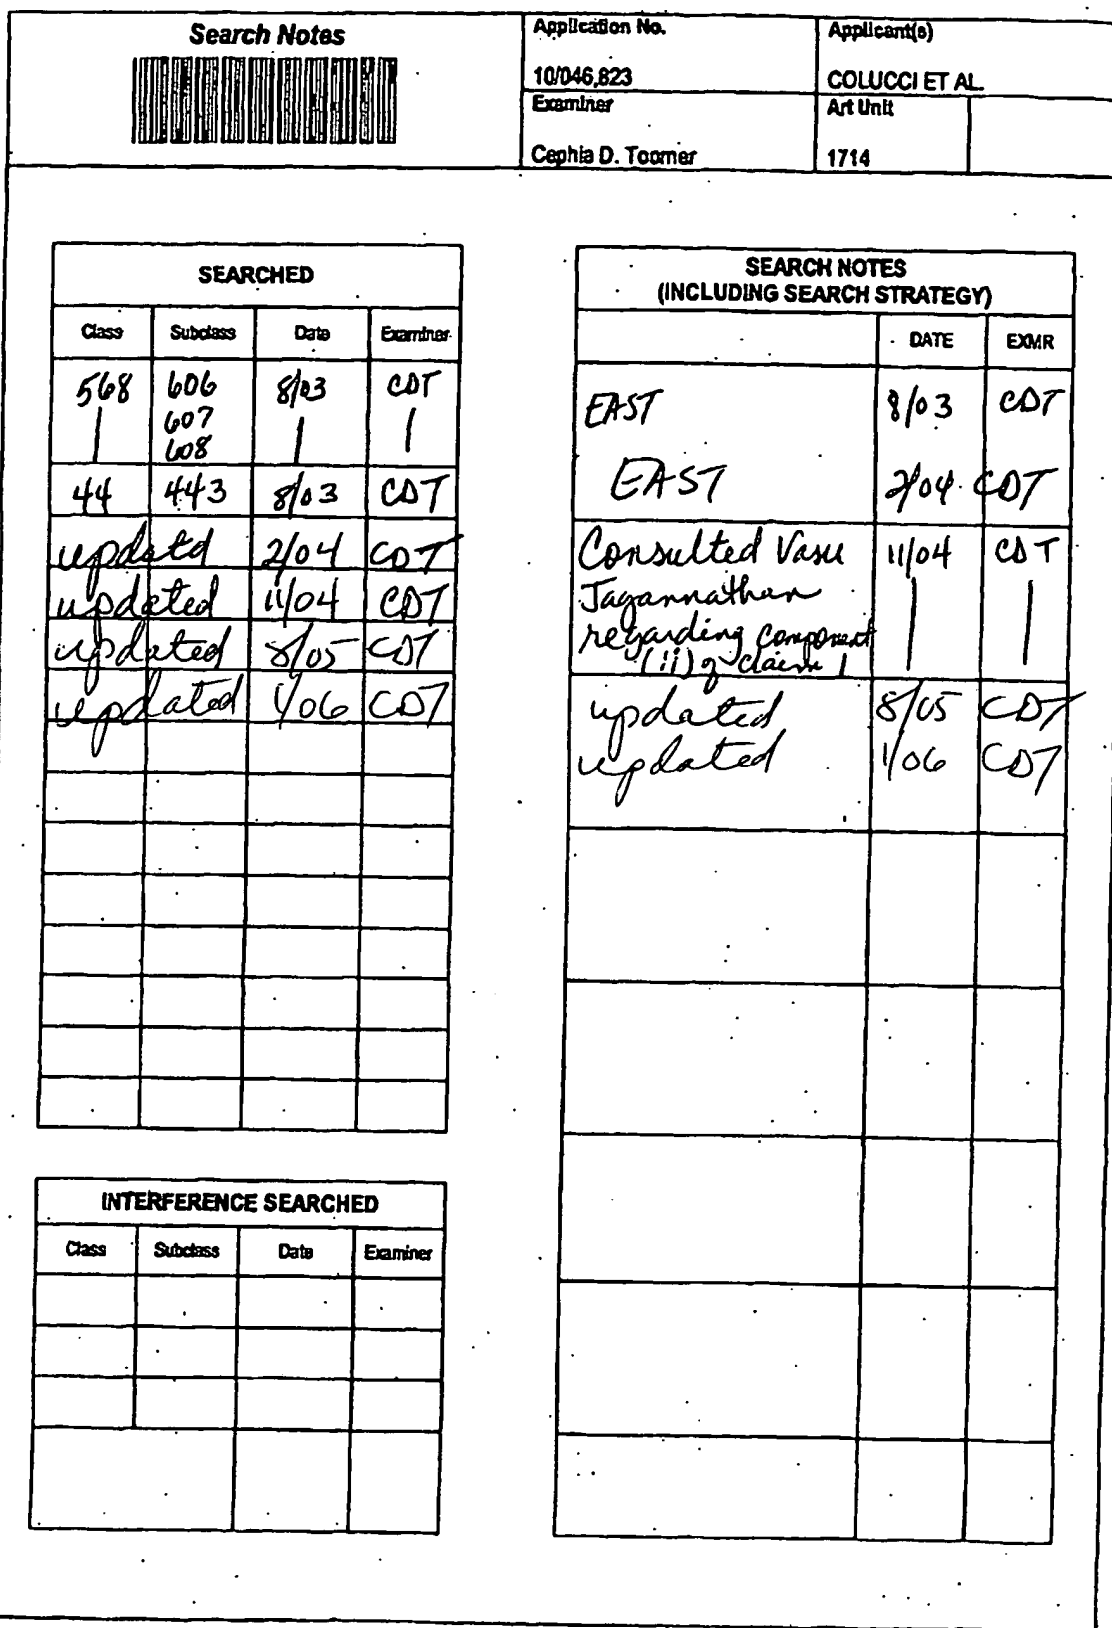 Search Notes
Application No.
10/046,823
Applicant(s)
COLUCCI ET AL.
Examiner
Cephia D. Toomer
Art Unit
1714
SEARCHED
Class Subclass Date Examiner
568 606 8/03 CDT
607
608
44 443 8/03 CDT
updatd 2/04 CDT
updated 11/04 CDT
updated 8/05 CDT
updated 1/06 CDT
INTERFERENCE SEARCHED
Class Subclass Date Examiner
SEARCH NOTES
(INCLUDING SEARCH STRATEGY)
DATE EXMR
EAST 8/03 CDT
EAST 2/04 CDT
Consulted Vasu 11/04 CDT
Jagannathan
regarding component
(ii) of claim 1
updated 8/05 CDT
updated 1/06 CDT